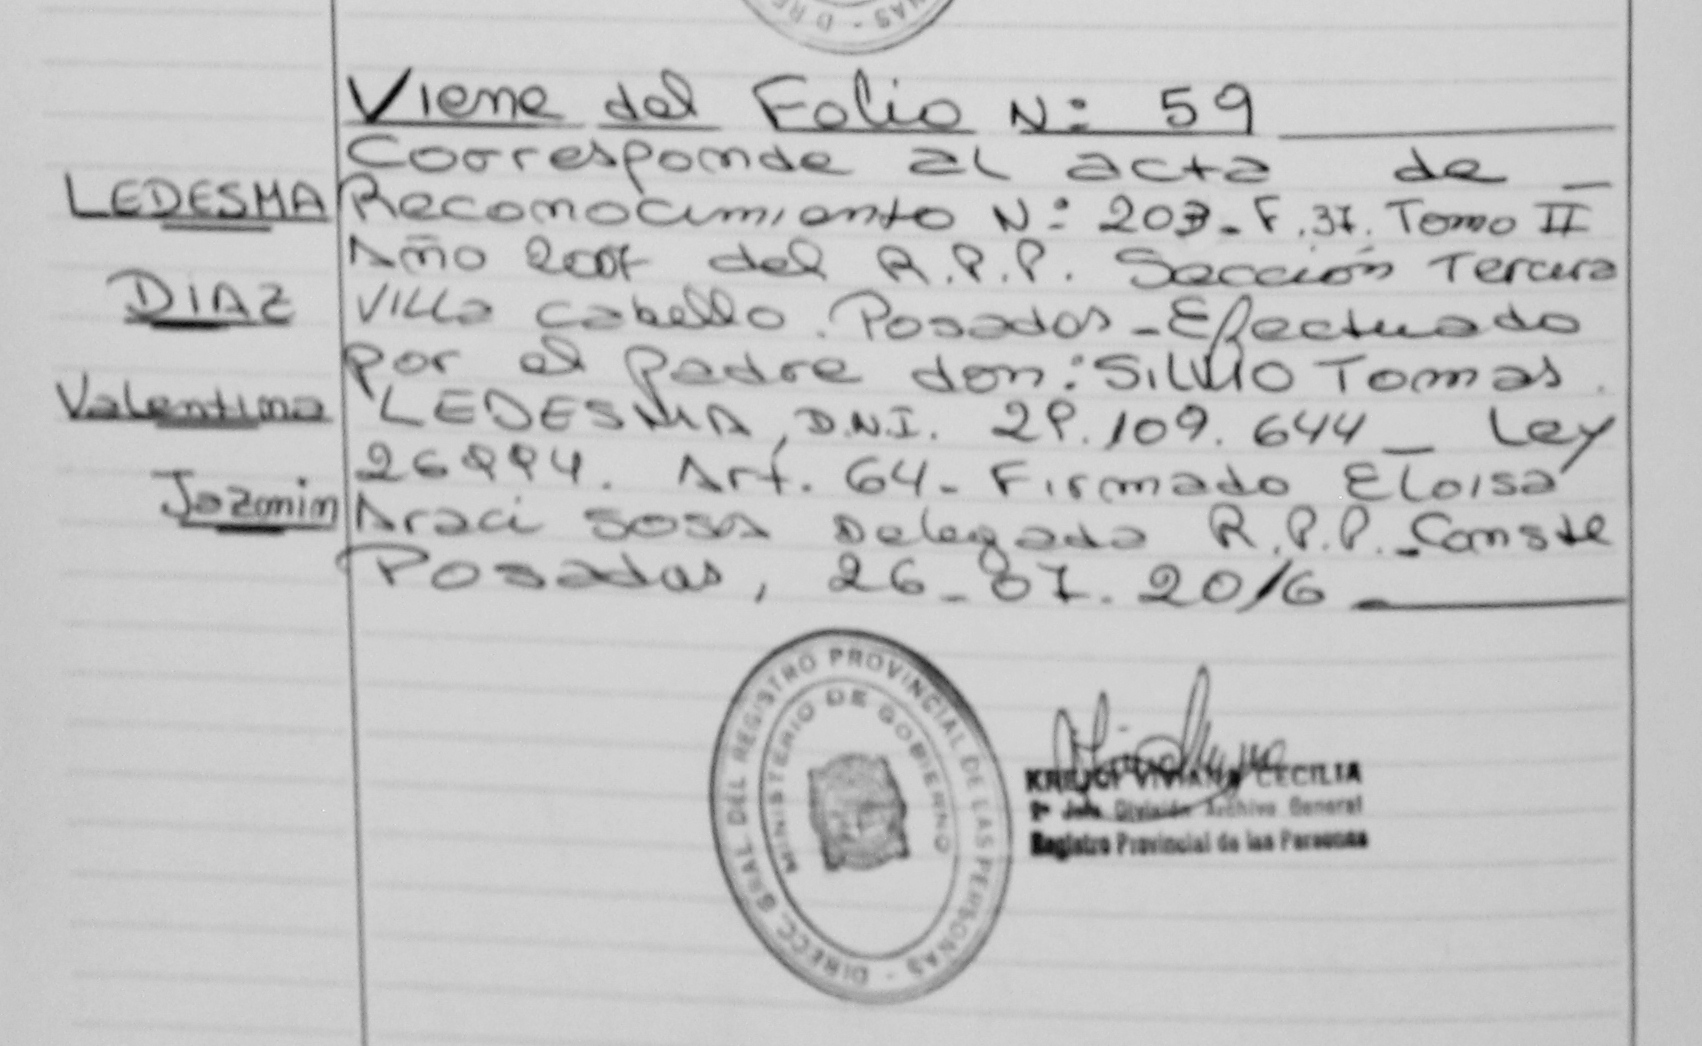 Viene del Folio N: 59
Corresponde al acta de
LEDESMA
Reconocimiento N: 203-F.37. Tomo II
Año del R.P.P. Sección Tercera
DIAZ
Villa Cabello. Posadas-Efectuado
por el padre don: SILVIO Tomas.
Valentina
LEDESMA, D.N.I. 29.109.644_ Ley
26994. Art. 64- Firmado Eloisa
Jazmin
Araci SOSA Delegada R.P.P.-Conste
Posadas, 26-07.2016
DIRECC. GRAL DEL REGISTRO PROVINCIAL DE LAS PERSONAS -
MINISTERIO DE GOBIERNO
VIVIANA CECILIA
División Archivo General
Registro Provincial de las Personas